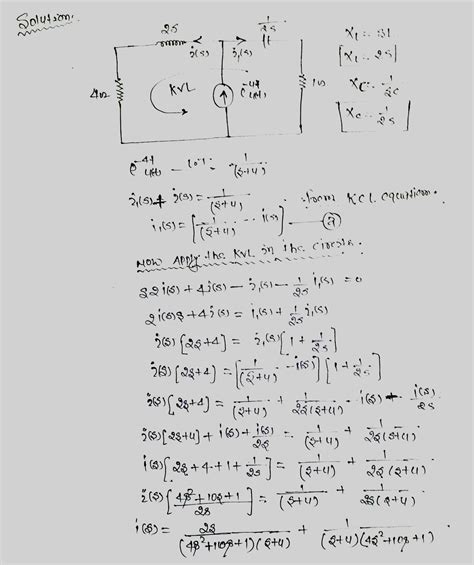 Solution:
2s
1/2s
i(s)
i₁(s)
4Ω
KVL
e^-4t u(t)
1Ω
X_L = sL
[X_L = 2s]
X_C = 1/sC
[X_C = 1/2s]
e^-4t u(t) — L.T → 1/(s+4)
i₁(s) + i(s) = 1/(s+4) from KCL equation.
i₁(s) = [1/(s+4) - i(s)] — (a)
Now Apply the KVL in the circuit.
2 i(s) + 4i(s) - i₁(s) - 1/2s i₁(s) = 0
2i(s)s + 4i(s) = i₁(s) + 1/2s i₁(s)
i(s) [2s+4] = i₁(s) [1 + 1/2s]
i(s) [2s+4] = [1/(s+4) - i(s)] [1 + 1/2s]
i(s) [2s+4] = 1/(s+4) + 1/2s(s+4) - i(s) - i(s)/2s
i(s) [2s+4] + i(s) + i(s)/2s = 1/(s+4) + 1/2s(s+4)
i(s) [2s+4+1+1/2s] = 1/(s+4) + 1/2s(s+4)
i(s) [4s²+10s+1/2s] = 1/(s+4) + 1/2s(s+4)
i(s) = 2s/(4s²+10s+1)(s+4) + 1/(s+4)(4s²+10s+1)